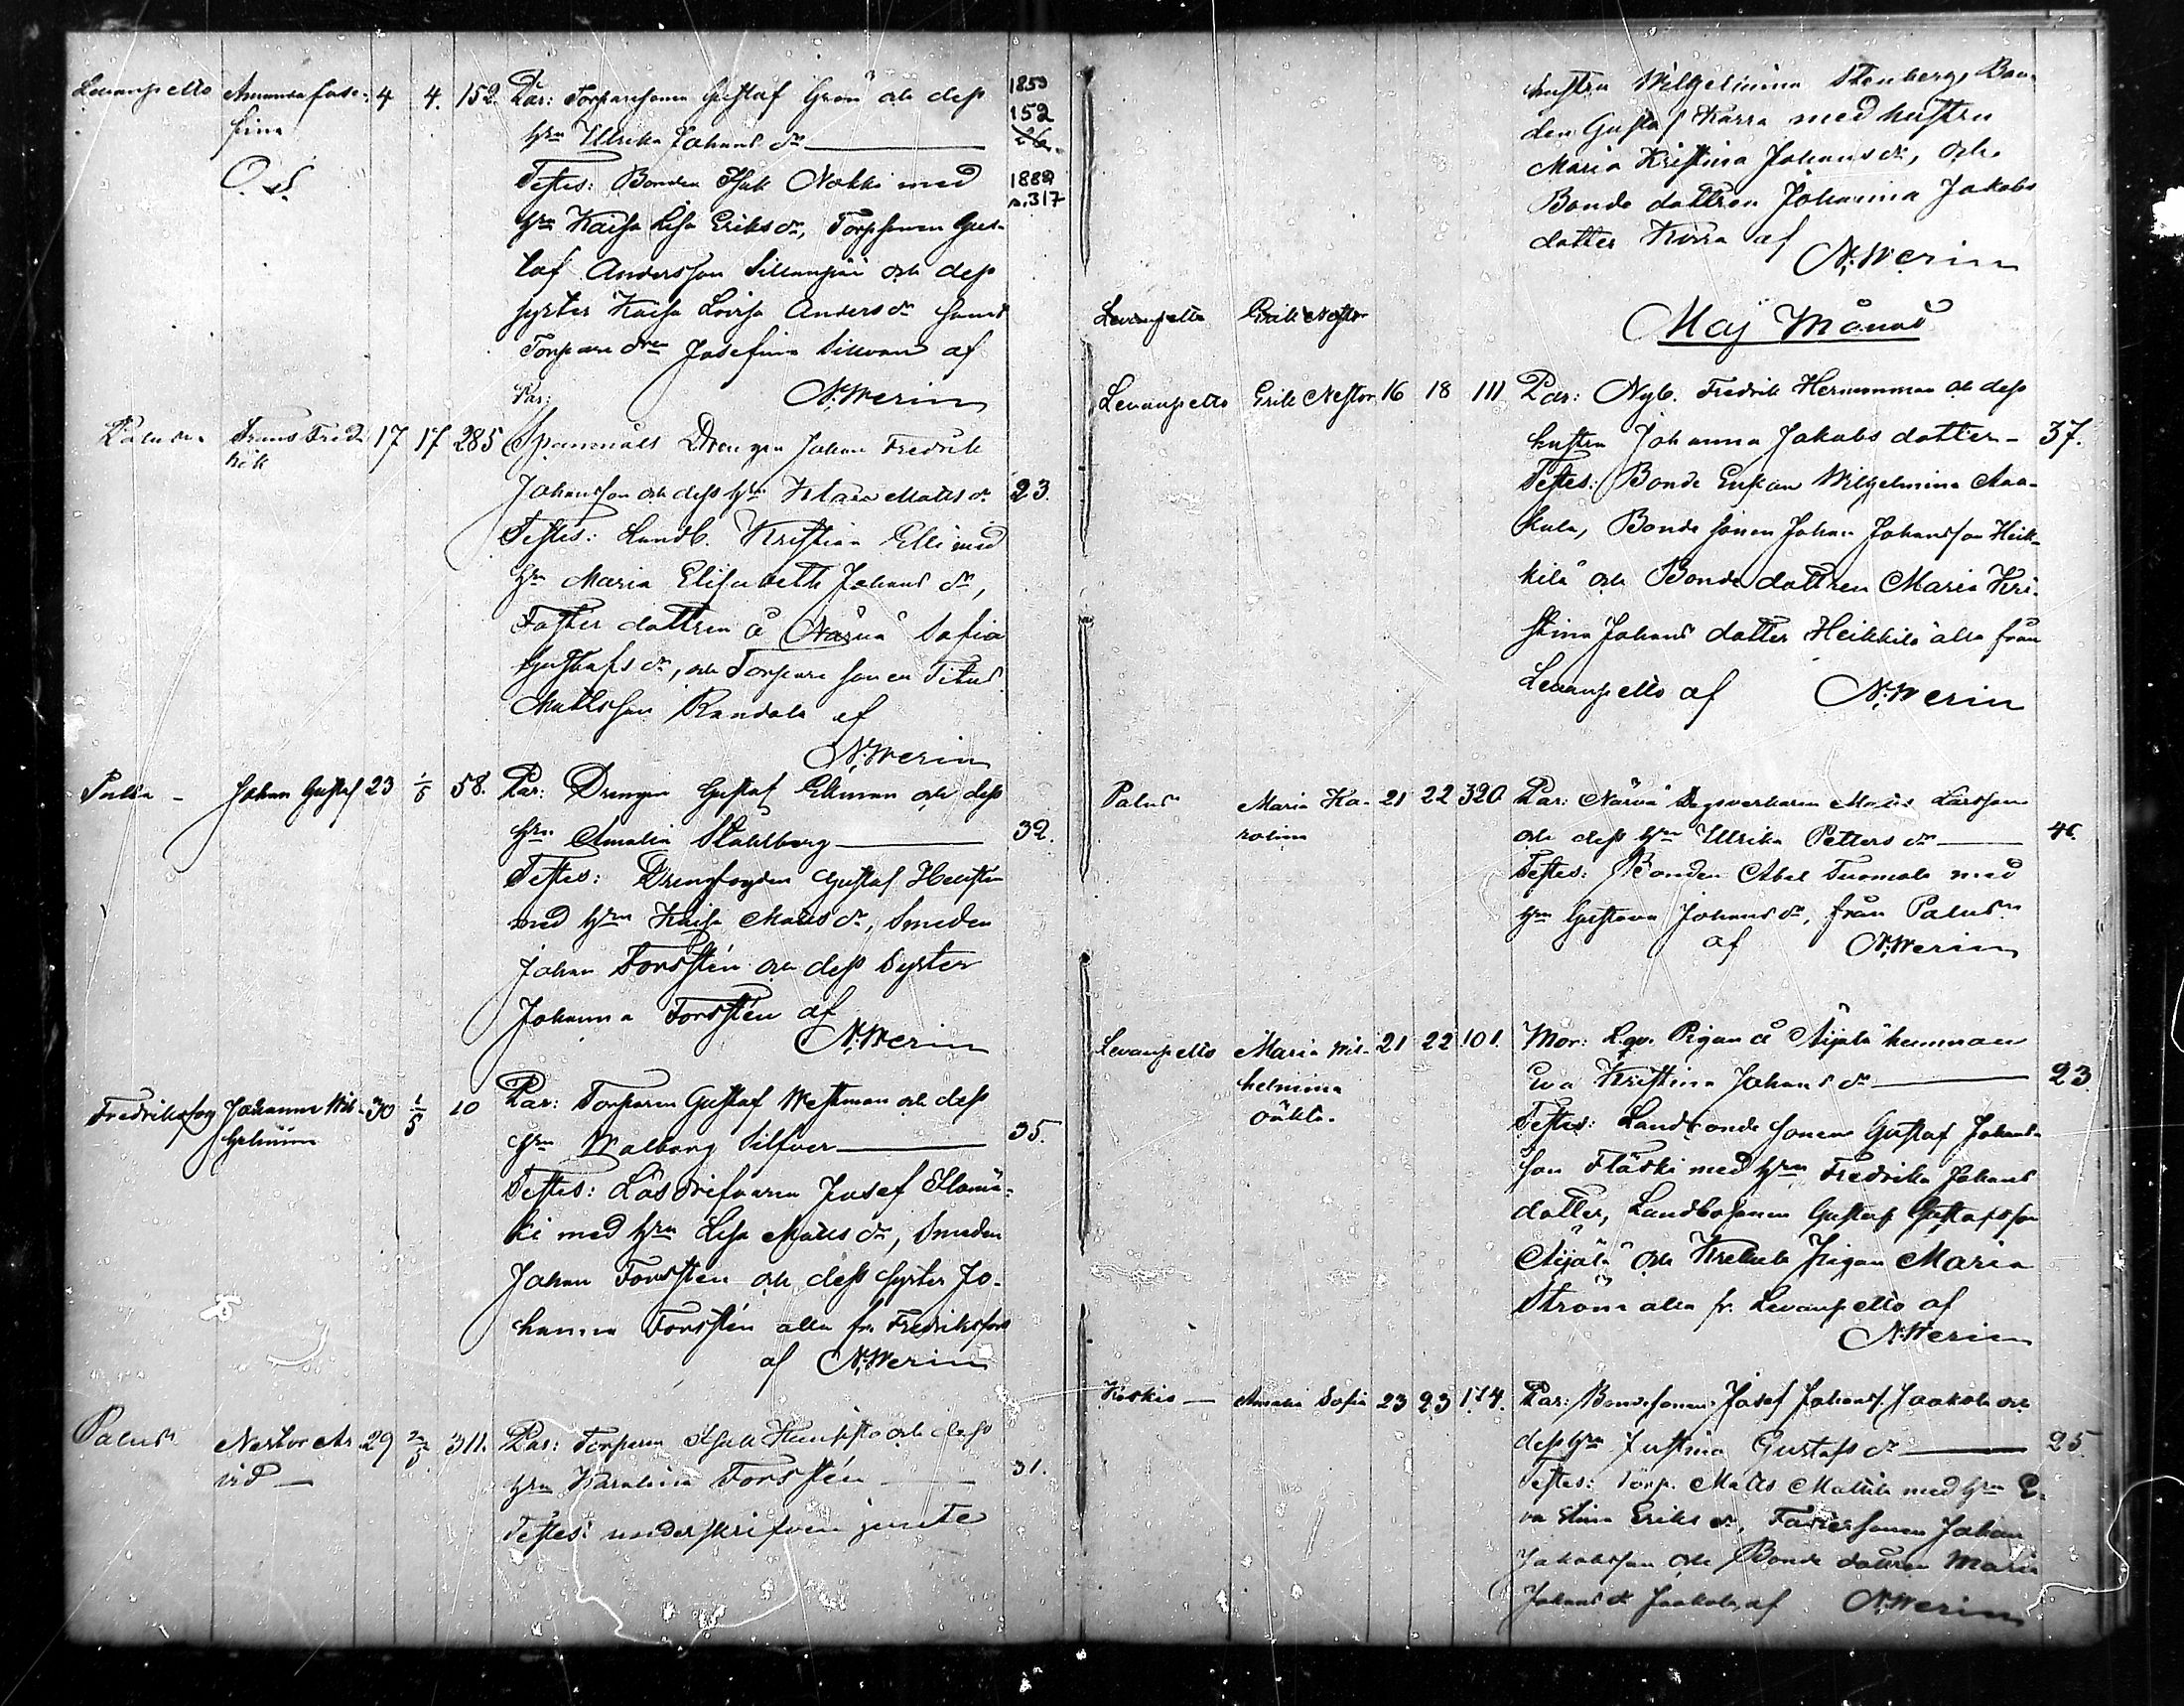 Levanpelto Amanda Jose- 4 4. 152. Par: Torparesonen Gustaf Grön och dess 1859
fina hru Ulrika Johans dr 152
26.
O. S. Testes: Bonden Isak Nokki med 1882
hru Kaisa Lisa Eriks dr, Torpsonen Gus- p. 317
taf Andersson Sillanpää och dess
syster Kaisa Lovisa Anders dr samt
Torpare dren Josefina Sillvan af
Par: N. Werin
Palus Frans Fred- 17 17 285 Spanmåls Drengen Johan Fredrik
rik
Johansson och dess hru Klara Matts dr. 23.
Testes: Landb. Kristian Elli med
hru Maria Elisabeth Johans dr,
Foster dattren å Närvä Sofia
Gustafs dr, och Torpare sonen Titus
Mattsson Randala af
N. Werin
Johan Gustaf 23 1/5 58. Par: Drengen Gustaf Ekman och dess
hru Amalia Stahlberg 32.
Testes: Drengfogden Gustaf Hellsten
med hru Kaisa Matts dr, Smeden
Johan Forsstén och dess Syster
Johanna Forsstén af
N. Werin
Fredriksfors Johanna Wil- 30 1/5 10 Par: Torparen Gustaf Westman och dess
helmina hru Walborg Silfver 35.
Testes: Lösdrifvaren Josef Ylämä-
ki med hru Lisa Matts dr, Smeden
Johan Forsstén och dess syster Jo-
hanna Forsstén alla fr. Fredriksfors
af N. Werin
Palus Nestor Ar- 29 2/5. 311. Par: Torparen Isak och dess
vid hru Karolina Forsstén 31.
Testes: underskrifven jemte
hustru Wilhelmina Stenberg, Bon-
den Gustaf Karra med hustru
Maria Kristina Johans dr, och
Bonde dattren Johanna Jakobs
datter Karra af
N. Werin
Levanpelto Erik Nestor
Maj Månad
Levanpelto Erik Nestor 16 18 111 Par: Nyb. Fredrik Hermonmaa och dess
hustru Johanna Jakobs datter - 37.
Testes: Bonde Enkan Wilhelmina Aaa-
kula, Bonde sonen Johan Johansson Heik-
kilä och Bonde dattren Maria Kri-
stina Johans datter Heikkilä alla från
Levanpelto af N. Werin
Palus Maria Ka- 21 22 320 Par: Närvä Dagsverkaren Matts Larsson
rolina och dess hru Ulrika Petters dr 46.
Testes: Bonden Abel Tuomola med
hru Gustava Johans dr, från Palus
af N. Werin
Levanpelto Maria Wil- 21 22 101. Mor: Lgv. Pigan å Äijälä hemman
helmina Eva Kristina Johans dr 23
oäkta. Testes: Landbonde sonen Gustaf Johans-
son Fläski med hru Fredrika Johans
datter, Landbosonen Gustaf Gustafsson
Äijälä och Krekula pigan Maria
Ström alla fr. Levanpelto af
N. Werin
Koskis Amalia Sofia 23 23 174. Par: Bondesonen Josef Johans. Jaakola och
dess hru Justina Gustafs dr 25
Testes: Torp. Matts Mattila med hru E-
va Stina Eriks dr, Johan
Jakobsson och Bonde dattren Maria
Johans dr Jaakola, af N. Werin